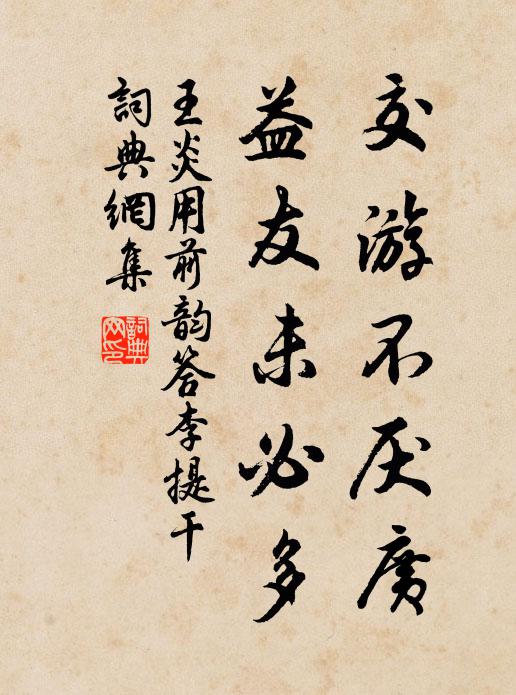 交游不厌廣
益友未必多
王炎用前韵答李提干
詞典網集
詞典
网印